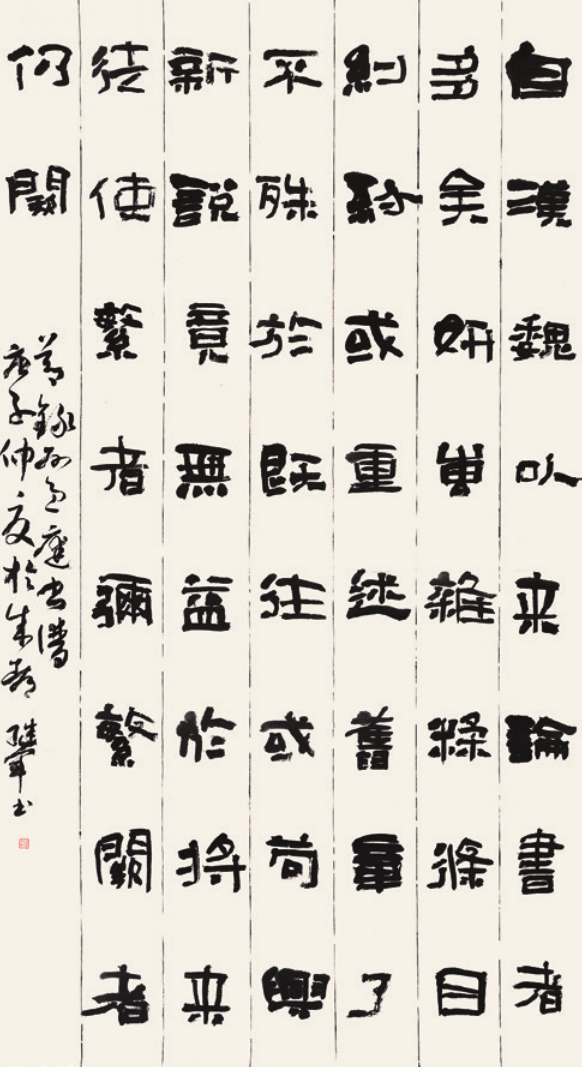 自漢魏以来論書者
多矣妍蚩雜糅條目
糾紛或重述舊章了
不殊於既往或苟興
新說竟無益於將来
徒使繁者彌繁闕者
仍闕
節錄孫過庭書譜
庚子仲夏於成都